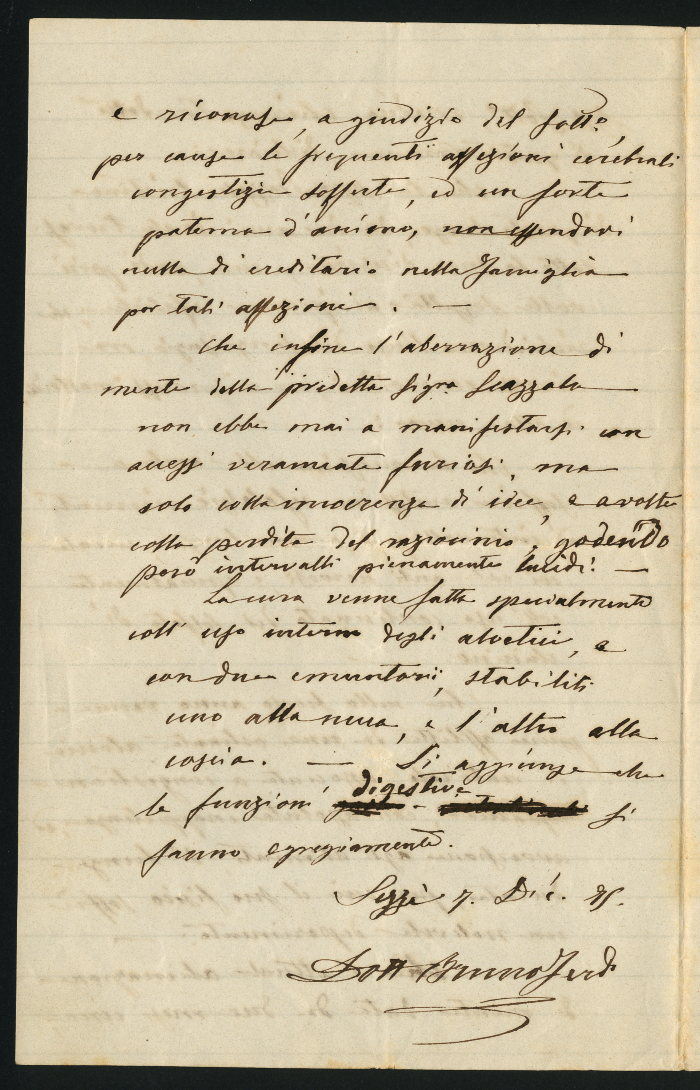 e riconosce, a giudizio del sott.o,
per cause le frequenti affezioni cerebrali
congestizie sofferte, ed un forte
patema d'animo, non essendovi
nulla di ereditario nella famiglia
per tali affezioni. —
Che infine l'aberrazione di
mente della predetta Sig.ra Scazzola
non ebbe mai a manifestarsi con
accessi veramente furiosi, ma
solo colla incoerenza di idee, e a volte
colla perdita del raziocinio, godendo
però intervalli pienamente lucidi. —
La cura venne fatta specialmente
coll' uso interno degli aloetici, e
con due emuntorii, stabiliti
uno alla nuca, e l'altro alla
coscia. — Si aggiunge che
le funzioni digestive si
fanno egregiamente.
Sezzè 7. Dic. 75.
Dott Bruno Ferd.